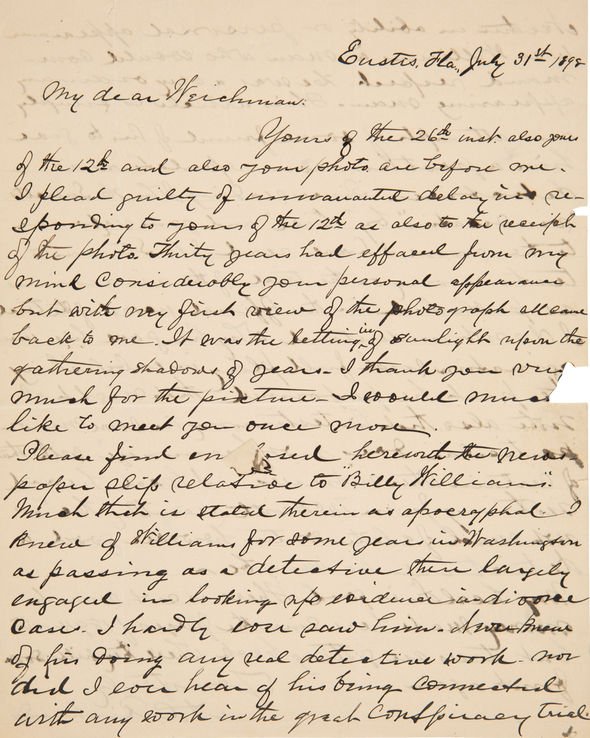 Eustis, Fla., July 31st 1898
My dear Weichman:
Yours of the 26th inst. also yours
of the 12th and also your photo are before me.
I plead guilty of unwarranted delay in re-
sponding to yours of the 12th as also to the receipt
of the photo. Thirty years had effaced from my
mind considerably your personal appearance
but with my first view of the photograph all came
back to me. It was the letting in of sunlight upon the
gathering shadows of years. I thank you very
much for the picture - I would much
like to meet you once more.
Please find en osed herewith the news
paper slip relative to "Billy Williams".
Much that is stated therein is apocryphal. I
knew of Williams for some year in Washington
as passing as a detective then largely
engaged in looking up evidence in divorce
cases. I hardly ever saw him. Never knew
of his doing any real detective work. nor
did I ever hear of his being connected
with any work in the great Conspiracy trial.